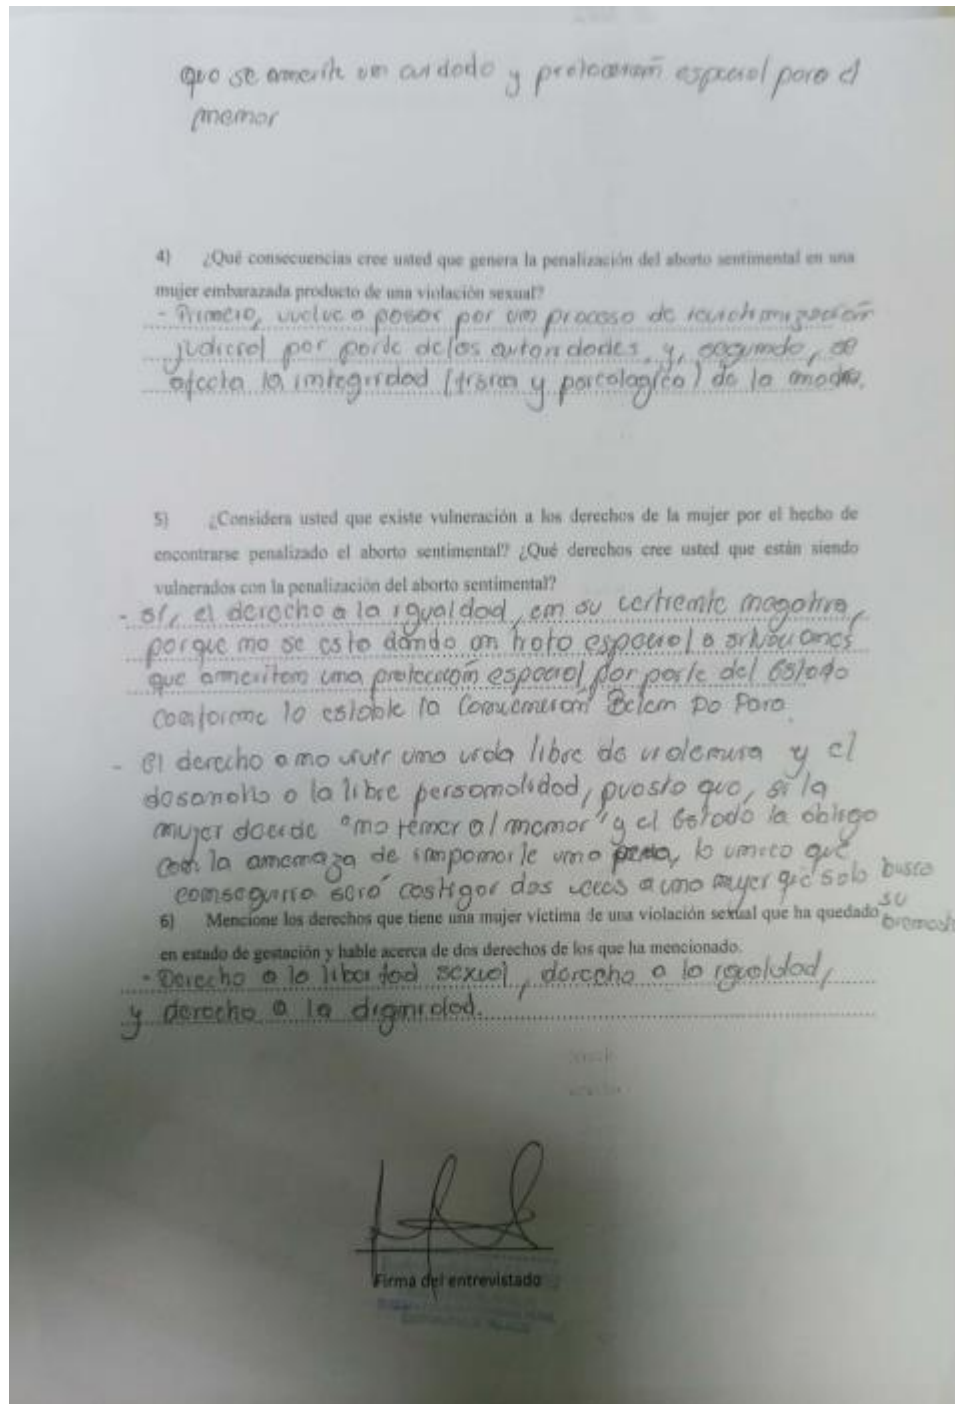 que se amerite un cuidado y protección especial para el
menor
4) ¿Qué consecuencias cree usted que genera la penalización del aborto sentimental en una
mujer embarazada producto de una violación sexual?
- Primero, vuelve a pasar por un proceso de revictimización
judicial por parte de las autoridades, y, segundo, se
afecta la integridad (física y psicológica) de la madre.
5) ¿Considera usted que existe vulneración a los derechos de la mujer por el hecho de
encontrarse penalizado el aborto sentimental? ¿Qué derechos cree usted que están siendo
vulnerados con la penalización del aborto sentimental?
- Sí, el derecho a la igualdad, en su vertiente negativa,
porque no se esta dando un trato especial a situaciones
que ameriten una protección especial por parte del Estado
conforme lo estable la Convención Belem Do Para.
- El derecho a no vivir una vida libre de violencia y el
desarrollo a la libre personalidad, puesto que, si la
mujer decide "no tener al menor" y el Estado la obliga
con la amenaza de imponerle una pena, lo unico que
conseguirra será castigar dos veces a una mujer que solo busca
su
6) Mencione los derechos que tiene una mujer víctima de una violación sexual que ha quedado
en estado de gestación y hable acerca de dos derechos de los que ha mencionado.
- Derecho a la libertad sexual, derecho a la igualdad,
y derecho a la dignidad.
Firma del entrevistado